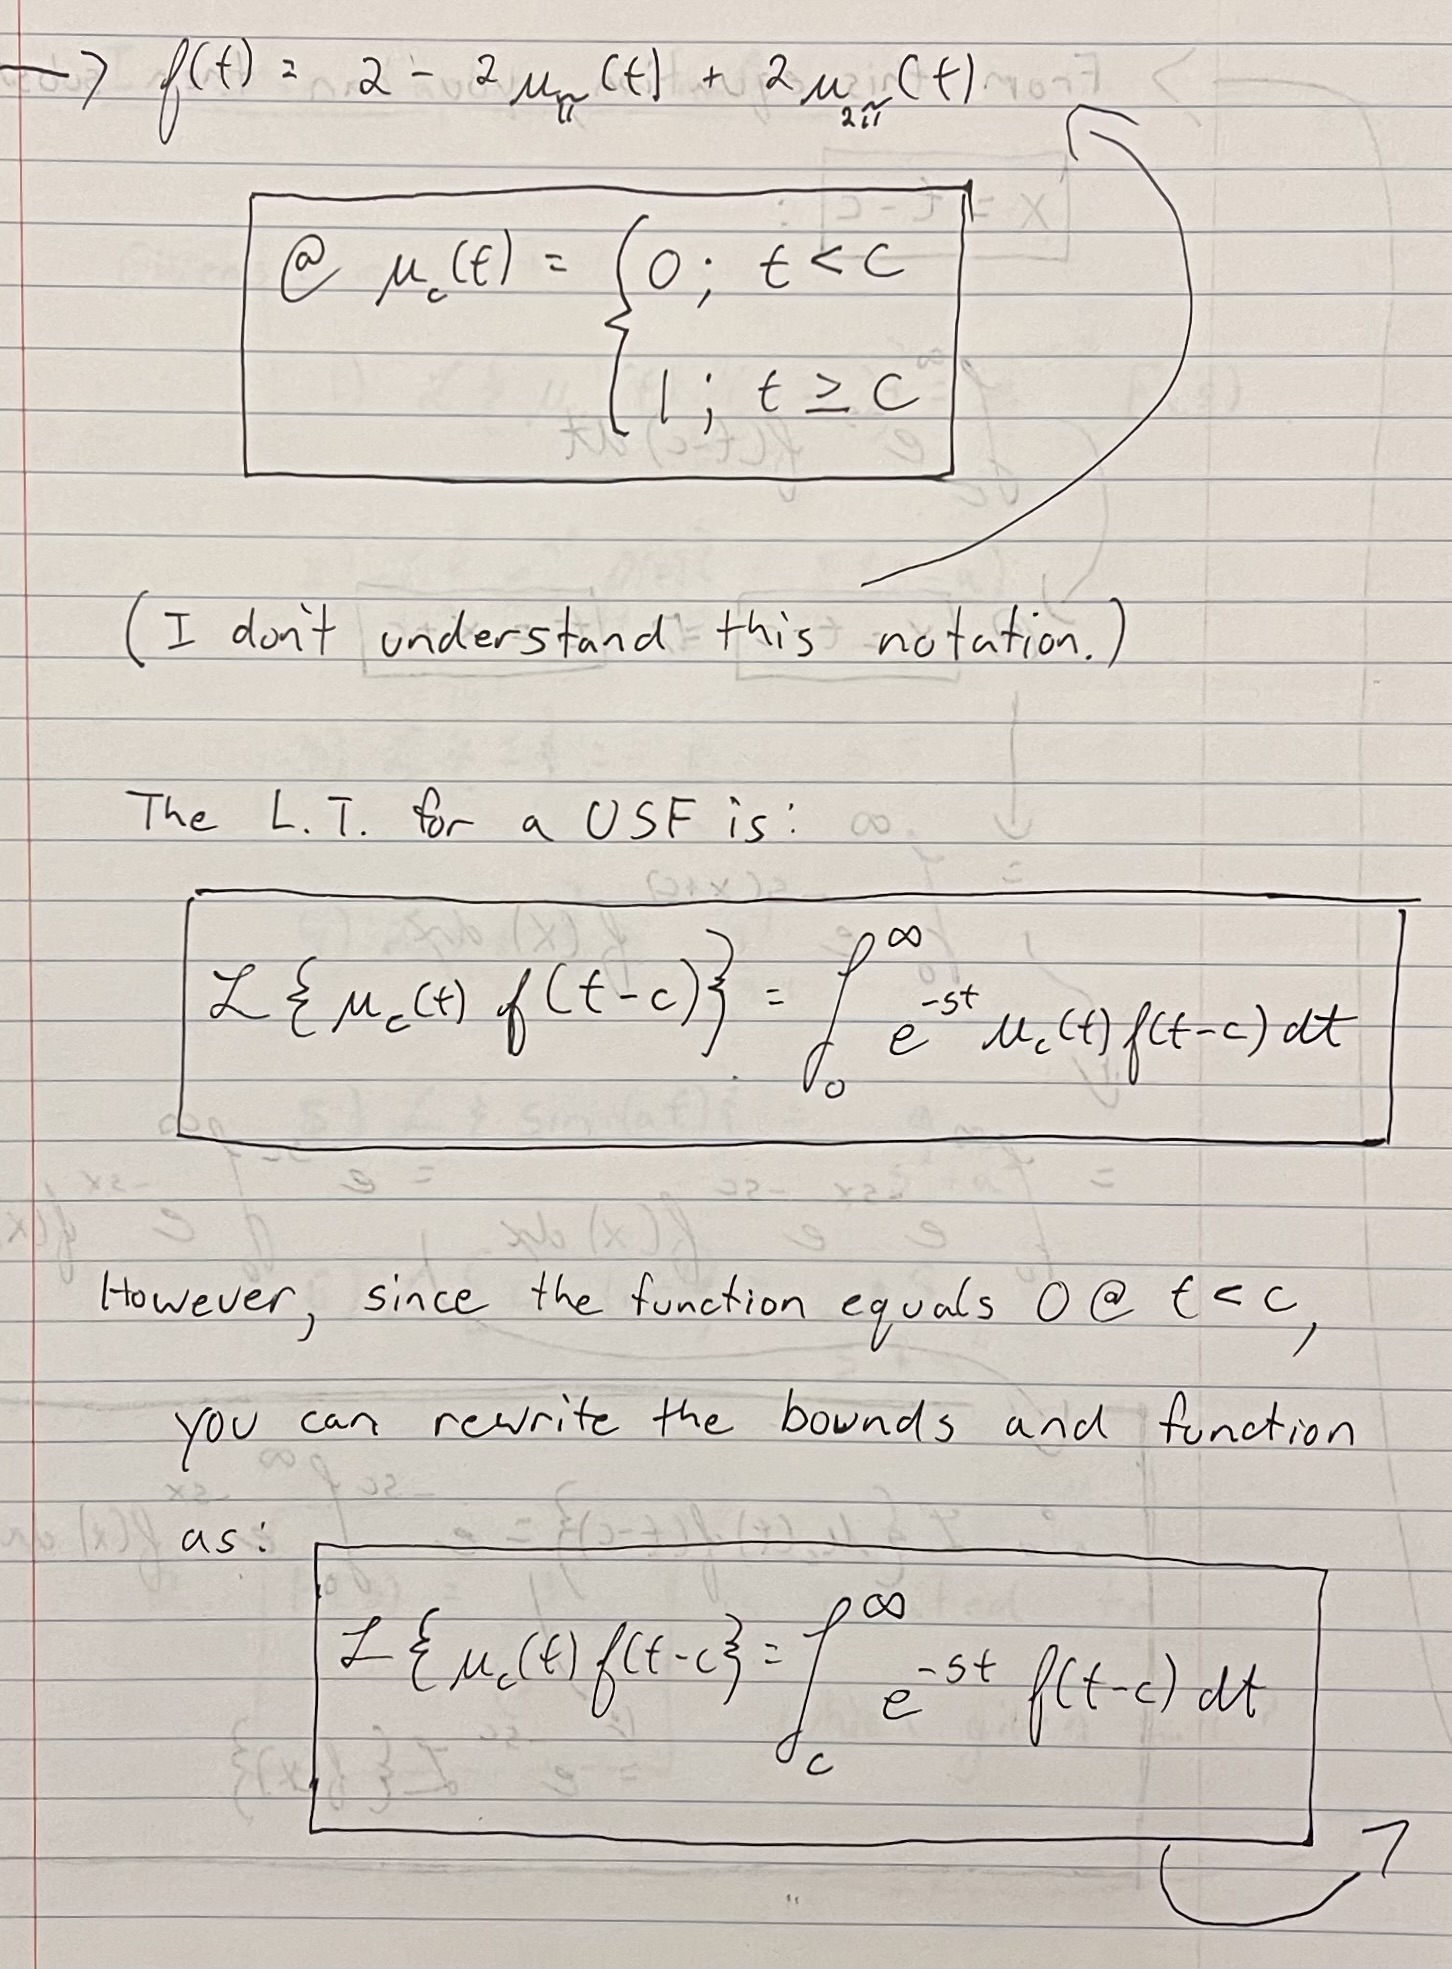 → f(t) = 2 - 2μ_π(t) + 2μ_2π(t)
@ μ_c(t) = { 0; t < c
1; t ≥ c
(I don't understand this notation.)
The L.T. for a USF is:
ℒ{μ_c(t) f(t-c)} = ∫_0^∞ e^{-st} μ_c(t) f(t-c) dt
However, since the function equals 0 @ t < c,
you can rewrite the bounds and function
as:
ℒ{μ_c(t) f(t-c} = ∫_c^∞ e^{-st} f(t-c) dt